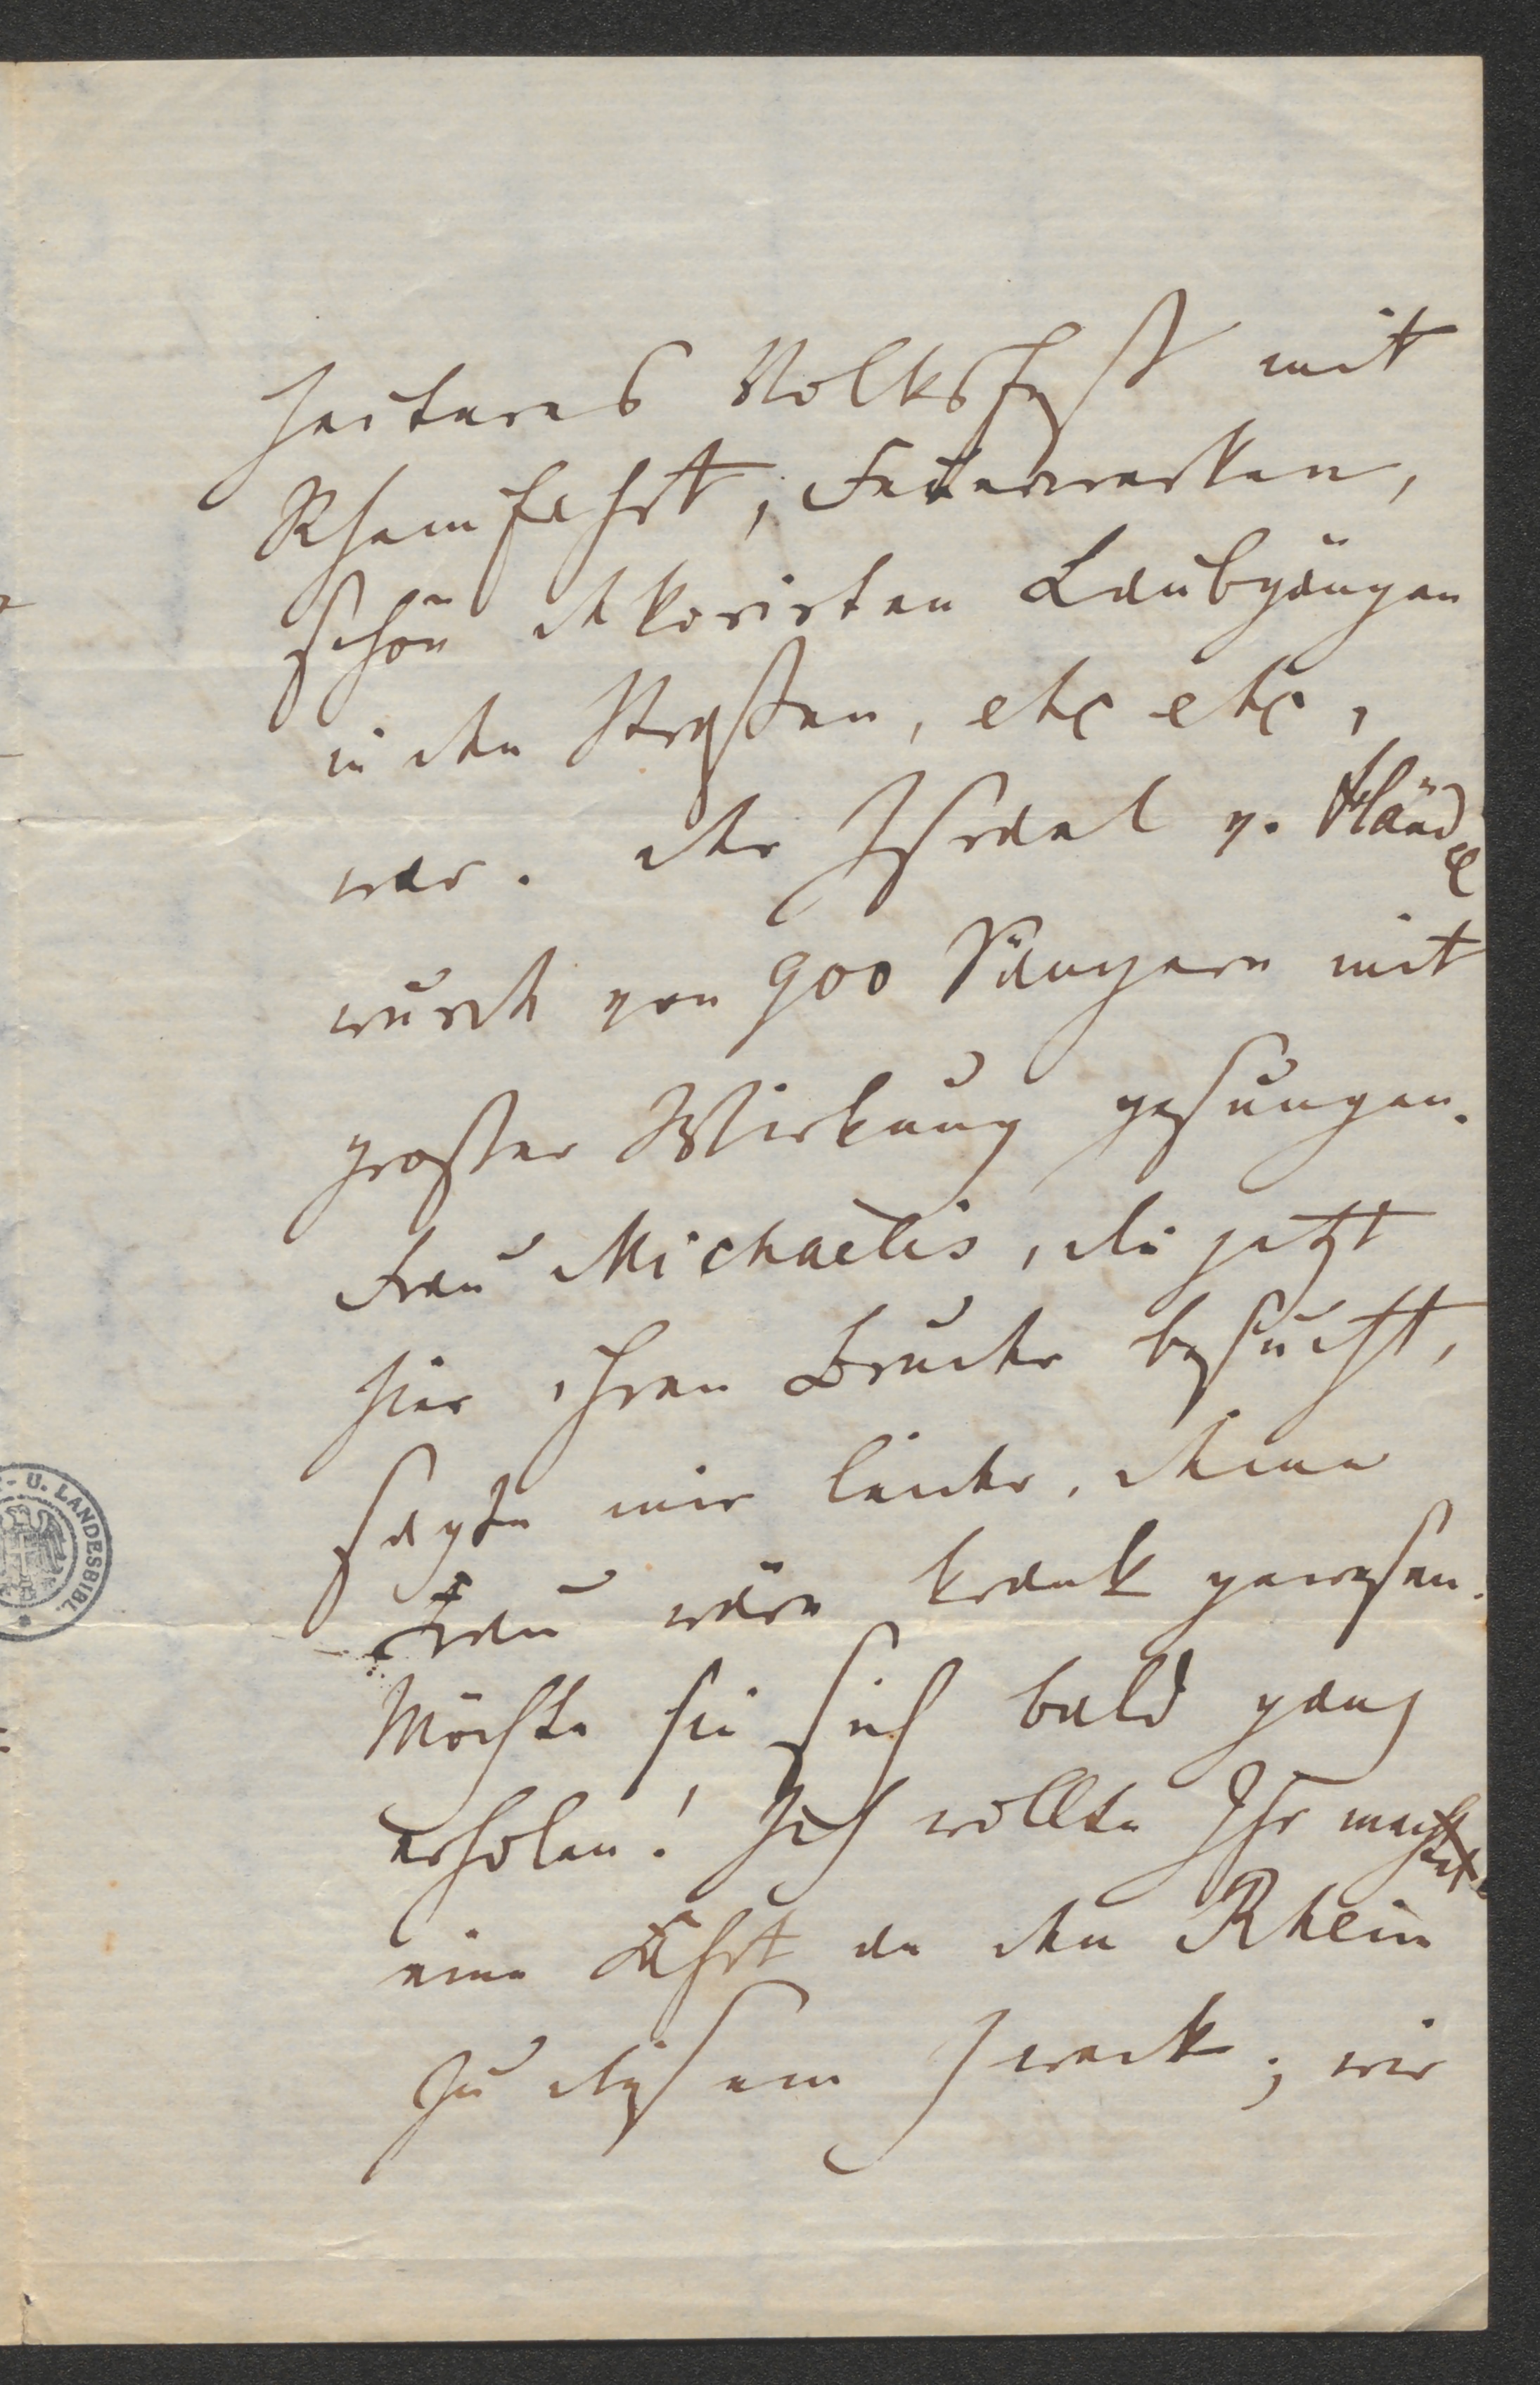 heiteres Volksfest mit
Rheinfahrt, Feuerwerken,
schön dekorirten Laubgängen
in den Straßen, etc etc,
war. Der Israel v. Händel
wurde von 900 Sängern mit
großer Wirkung gesungen.
Frau Michaelis, die jetzt
hier ihren Bruder besucht,
sagte mir leider, deine
Frau wäre krank gewesen.
Möchte sie sich bald ganz
erholen! Ich wollte Ihr
eine Fahrt an den Rhein
zu diesem Zweck; wir
- U. LANDESBIBL.